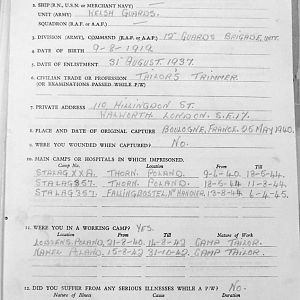 2. SHIP (R.N., U.S.N. or MERCHANT NAVY)
UNIT (ARMY) WELSH GUARDS.
SQUADRON (R.A.F. or A.A.F.)
3. DIVISION (ARMY), COMMAND (R.A.F. or A.A.F.) GUARDS BRIGADE,
4. DATE OF BIRTH 9-8-1919.
5. DATE OF ENLISTMENT 31ST AUGUST. 1937.
6. CIVILIAN TRADE OR PROFESSION TAILOR'S TRIMMER.
(OR EXAMINATIONS PASSED WHILE P/W)
7. PRIVATE ADDRESS 110, HILLINGDON ST.
WALWORTH. LONDON. S.E.17.
8. PLACE AND DATE OF ORIGINAL CAPTURE BOULOGNE, FRANCE. 25 MAY 1940.
9. WERE YOU WOUNDED WHEN CAPTURED? NO.
10. MAIN CAMPS OR HOSPITALS IN WHICH IMPRISONED.
Camp No. Location From Till
STALAG XXA. THORN. POLAND. 9-6-40. 18-5-44
STALAG 357. THORN. POLAND. 18-5-44 11-8-44
STALAG 357. FALLINGBOSTEL, NR HANOVER. 13-8-44 6-4-45.
11. WERE YOU IN A WORKING CAMP? YES.
Location From Till Nature of Work
POLAND. 21-8-40. 14-8-42 CAMP TAILOR.
POLAND. 15-8-42 31-10-42. CAMP TAILOR.
12. DID YOU SUFFER FROM ANY SERIOUS ILLNESSES WHILE A P/W? NO.
Nature of Illness Cause Duration